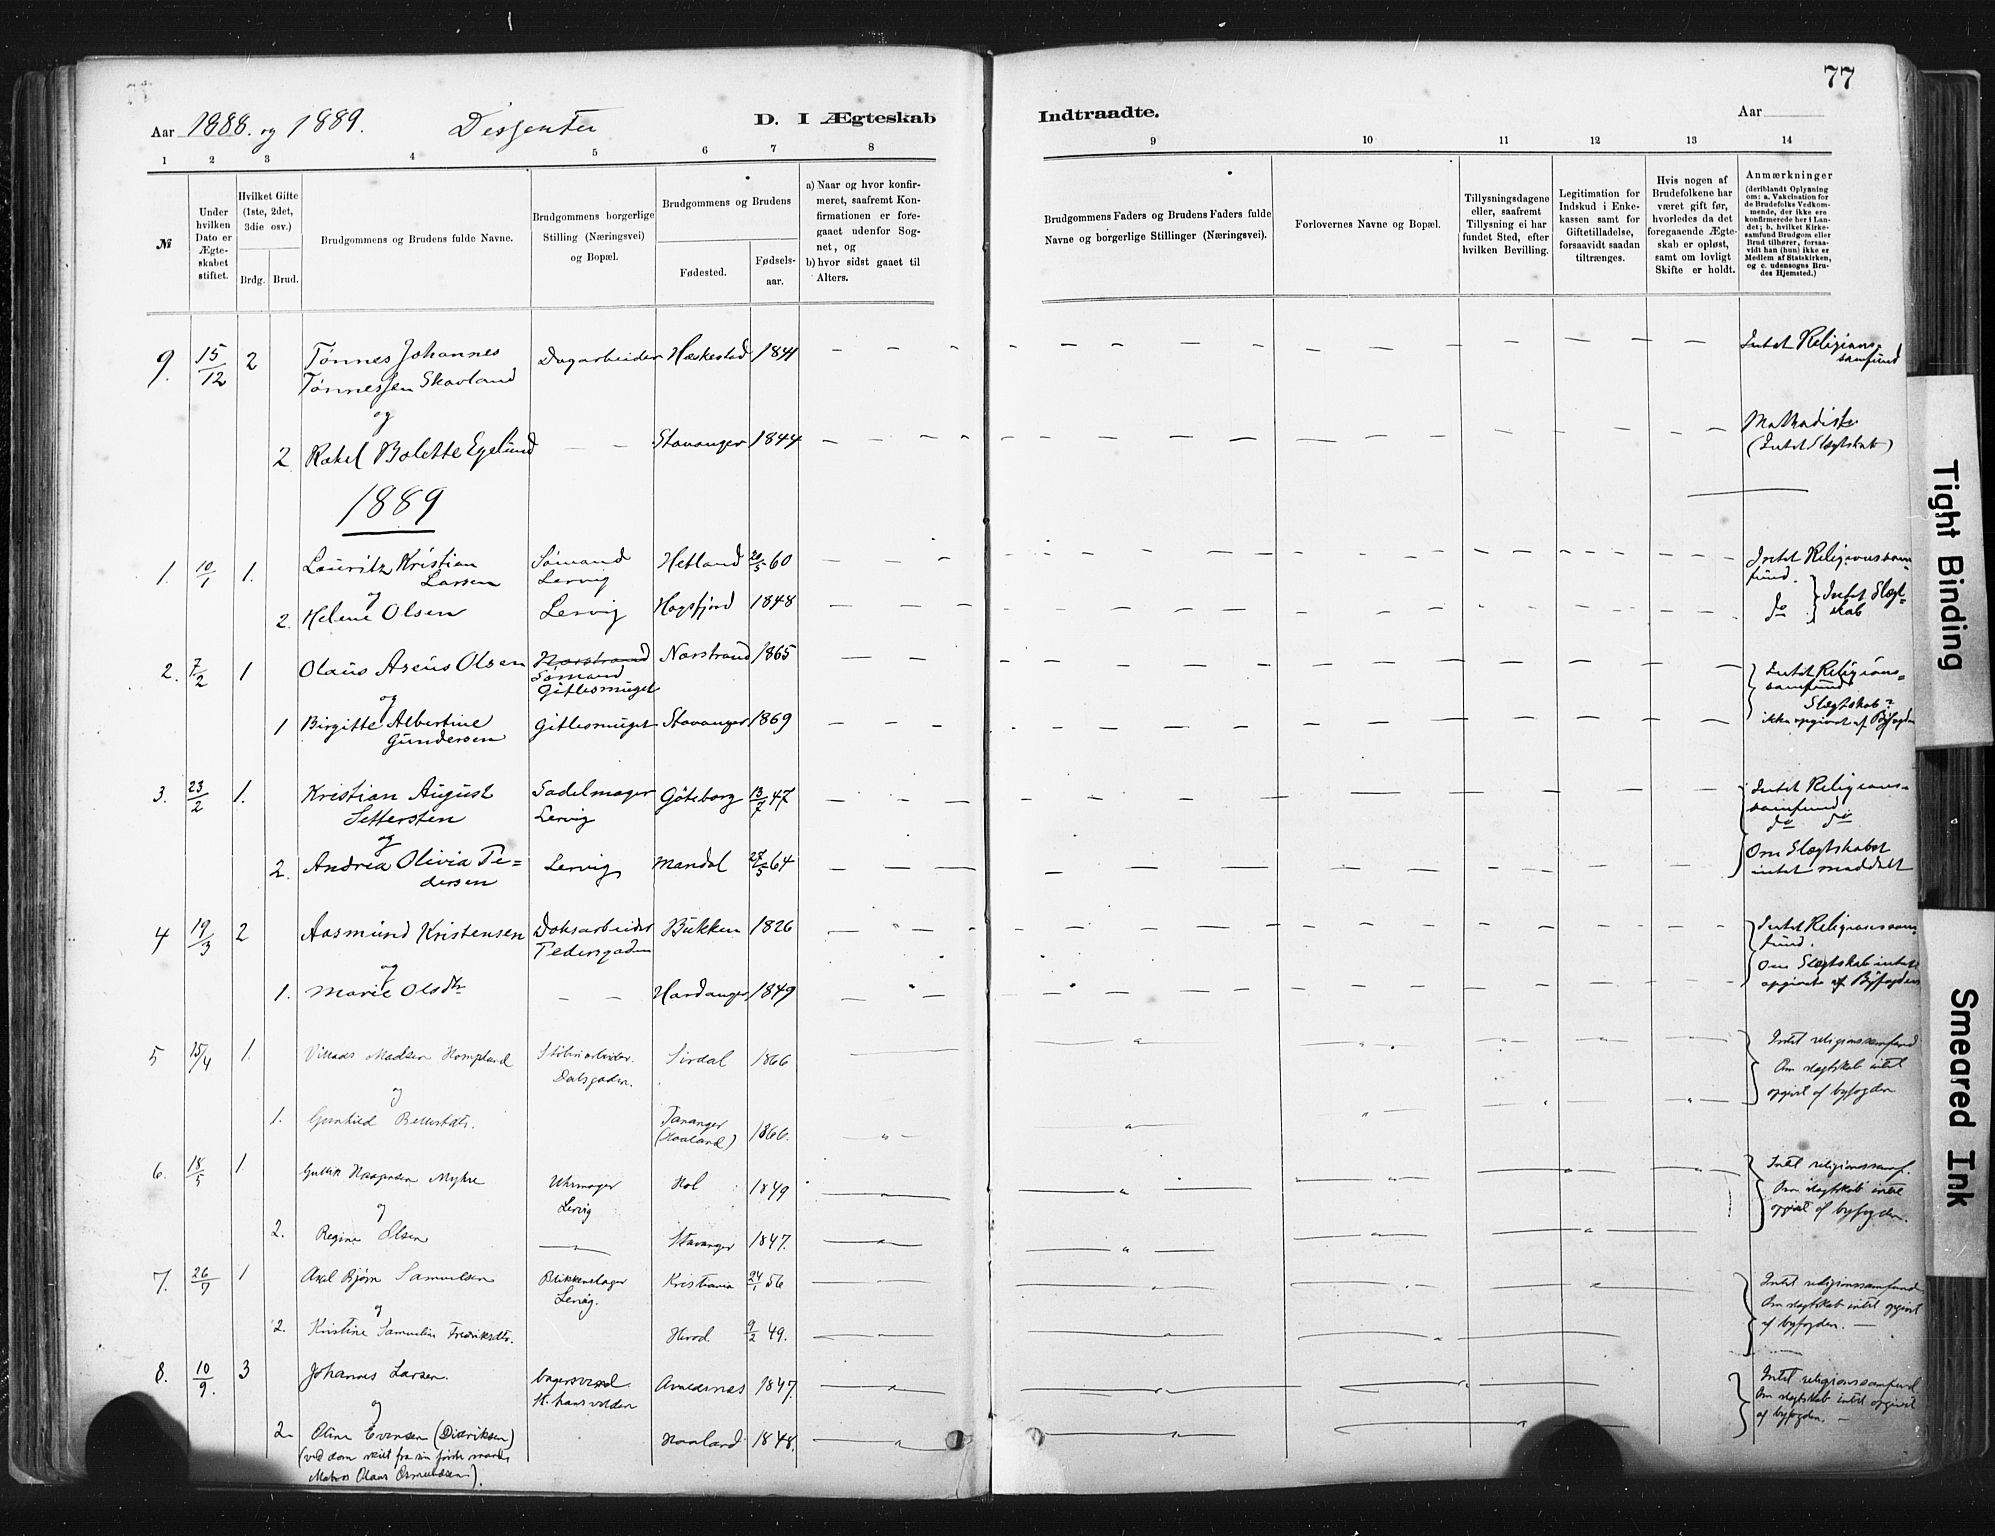 77
Aar 1888. og 1889. Dissenter D. I Ægteskab Indtraadte. Aar
1 2 3 4 5 6 7 8 9 10 11 12 13 14
№
Under hvilken Dato er Ægteskabet stiftet.
Hvilket Gifte (1ste, 2det, 3die osv.)
Brdg. Brud.
Brudgommens og Brudens fulde Navne.
Brudgommens borgerlige Stilling (Næringsvei) og Bopæl.
Brudgommens og Brudens
Fødested. Fødselsaar.
a) Naar og hvor konfirmeret, saafremt Konfirmationen er foregaaet udenfor Sognet, og
b) hvor sidst gaaet til Alters.
Brudgommens Faders og Brudens Faders fulde Navne og borgerlige Stillinger (Næringsvei).
Forlovernes Navne og Bopæl.
Tillysningsdagene eller, saafremt Tillysning ei har fundet Sted, efter hvilken Bevilling.
Legitimation for Indskud i Enkekassen samt for Giftetilladelse, forsaavidt saadan tiltrænges.
Hvis nogen af Brudefolkene har været gift før, hvorledes da det foregaaende Ægteskab er opløst, samt om lovligt Skifte er holdt.
Anmærkninger
(deriblandt Oplysning om: a. Vakcination for de Brudefolks Vedkommende, der ikke ere konfirmerede her i Landet; b. hvilket Kirkesamfund Brudgom eller Brud tilhører, forsaavidt han (hun) ikke er Medlem af Statskirken, og c. udensogns Brudes Hjemsted.)
9. 15/12 2 Tønnes Johannes Dagarbeider Heskestad 1841 Intet Religions=
Tønnessen Skavland samfund
og
2 Rakel Bolette Egelund Stavanger 1844 Methodiste
(Intet Slægtskab)
1889
1. 10/1 1. Lauritz Kristian Sømand Hetland 20/5 60 Intet Religionssam=
Larsen Lervig fund.
og
2. Helene Olsen Lervig Høgsfjord 1848 do Intet Slægt=
skab
2. 7/2 1 Olaus Aseus Olsen Narstrand Narstrand 1865 Intet Religions=
Sømand samfund
Gitlesmuget
og Slægtskab
1 Birgitte Albertine Gitlesmuget Stavanger 1869 ikke opgivet af Byfogden
Gundersen
3. 23/2 1. Kristian August Sadelmager Göteborg 13/7 47 Intet Religions=
Settersten Lervig samfund
og do do
2. Andrea Olivia Pe= Lervig Mandal 27/5 64 Om Slægtskabet
dersen intet meddelt
4 19/3 2 Aasmund Kristensen Doksarbeider Bukken 1826 Intet Religionssam=
Pedersgaden fund.
og Om Slægtskab intet
1. Marie Olsdtr Hardanger 1849 opgivet af Byfogden
5 15/4 1. Villads Madsen Hompland Støberiarbeider. Sirdal 1866 Intet religionssamfund
Dalsgaden. Om slægtskab intet
og opgivet af byfogden
1. Gunhild Tananger 1866.
(Haaland)
6. 18/5 1 Myhre Uhrmager Hol 1849 Intet religionssamf.
Lervig Om slægtskab intet
og opgivet af byfogden.
2. Regine Olsen Stavanger 1847.
7. 26/7 1 Axel Bjørn Samuelsen Blikkenslager Kristiania 24/1 56 Intet religionssamfund
Lervig. Om slægtskab intet opgivet
og af byfogden. —
2. Kristine Samueline Fredriksdtr. 9/2 49.
8. 10/9. 3 Johannes Larsen. bagersvend Avaldsnes 1847. Intet religionssamfund
Om slægtskab intet opgivet
og af byfogden. —
2. Oline Evensen (Didriksen) Haaland 1848.
(ved dom skilt fra sin første mand,
Matros Olaus Osmundsen).
Tight Binding
Smeared Ink